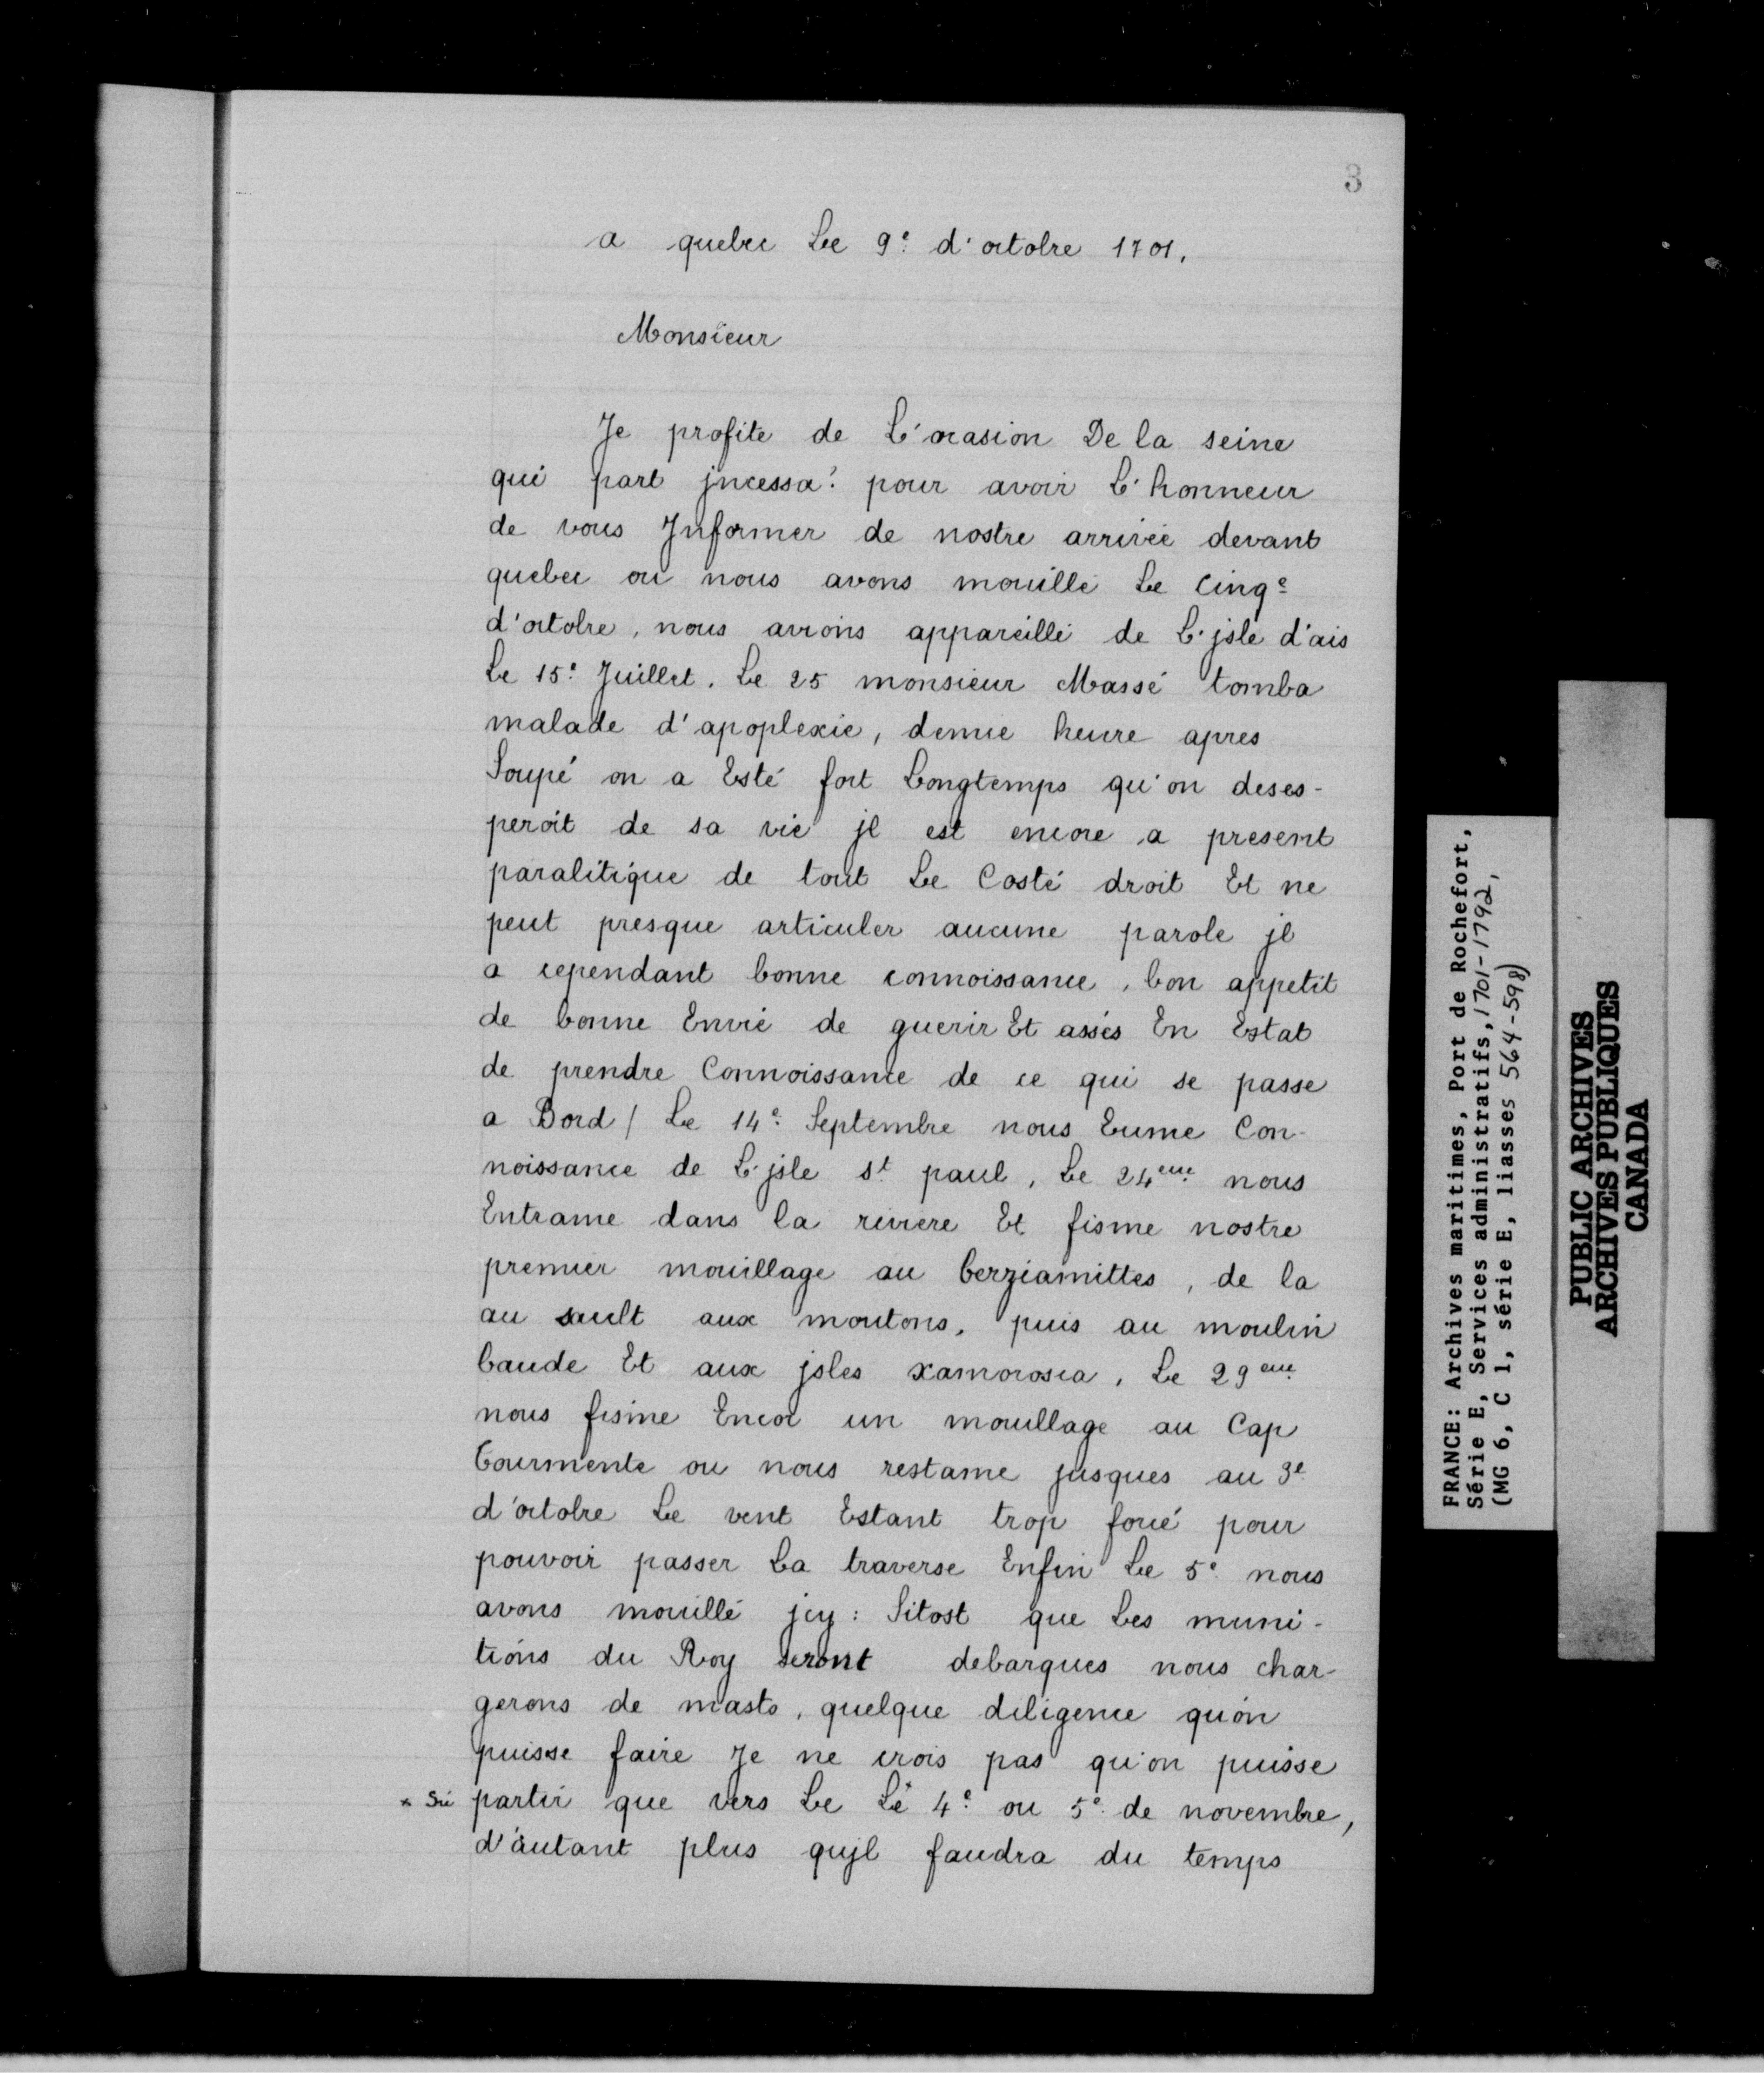 3
a quebec Le 9e d'octobre 1701.
Monsieur
Je profite de L'ocasion De la seine
qui part jncessat pour avoir L'honneur
de vous Informer de nostre arrivée devant
quebec ou nous avons mouillé Le Cinqe
d'octobre, nous avions appareillé de L'jsle d'ais
Le 15e Juillet. Le 25 monsieur Massé tomba
malade d'apoplexie, demie heure apres
Soupé on a Esté fort Longtemps qu'on deses-
peroit de sa vie jl est encore a present
paralitique de tout Le Costé droit Et ne
peut presque articuler aucune parole jl
a cependant bonne connoissance, bon appetit
de bonne Envie de guerir Et assés En Estat
de prendre Connoissance de ce qui se passe
a Bord / Le 14e Septembre nous Eume Con-
noissance de L'jsle st paul, Le 24eme nous
Entrame dans la riviere Et fisme nostre
premier mouillage au berziamittes, de la
au sault aux moutons, puis au moulin
baude Et aux jsles xamorosca, Le 29eme
nous fisme Encor un mouillage au Cap
Tourmente ou nous restame jusques au 3e
d'octobre Le vent Estant trop foué pour
pouvoir passer La traverse Enfin Le 5e nous
avons mouillé jcy: Sitost que Les muni-
tions du Roy seront debarques nous char-
gerons de masts, quelque diligence qu'on
puisse faire Je ne crois pas qu'on puisse
* Sic partir que vers Le Le* 4e ou 5e de novembre,
d'autant plus qujl faudra du temps
FRANCE: Archives maritimes, Port de Rochefort,
Série E, Services administratifs, 1701-1792,
(MG 6, C 1, série E, liasses 564-598)
PUBLIC ARCHIVES
ARCHIVES PUBLIQUES
CANADA